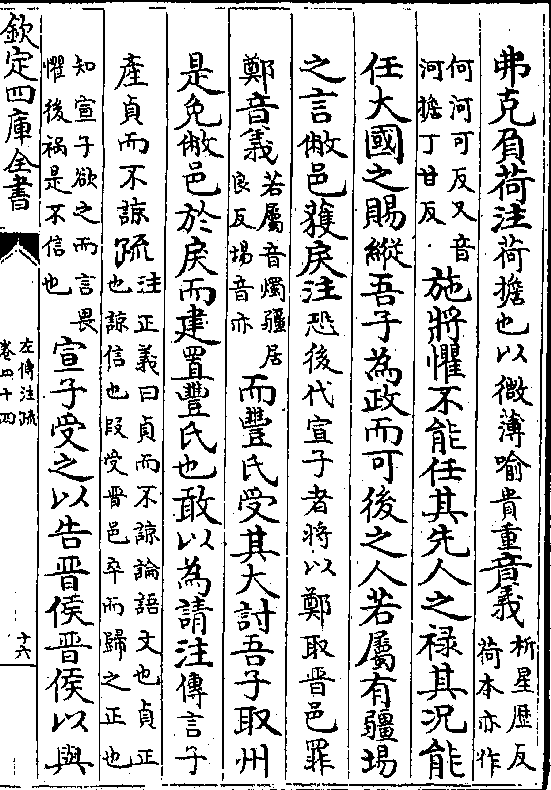 弗克負荷注荷擔也以微薄喻貴重音義析星歷反荷本亦作
何河可反又音河擔丁甘反施將懼不能任其先人之祿其況能
任大國之賜縱吾子為政而可後之人若屬有疆埸
之言敝邑獲戾注恐後代宣子者將以鄭取晉邑罪
鄭音義若屬音燭疆居良反埸音亦而豐氏受其大討吾子取州
是免敝邑於戾而建置豐氏也敢以為請注傳言子
產貞而不諒疏注正義曰貞而不諒論語文也貞正也諒信也段受晉邑卒而歸之正也
知宣子欲之而言畏懼後禍是不信也宣子受之以告晉侯晉侯以與
欽定四庫全書
左傳注疏
卷四十四
十六